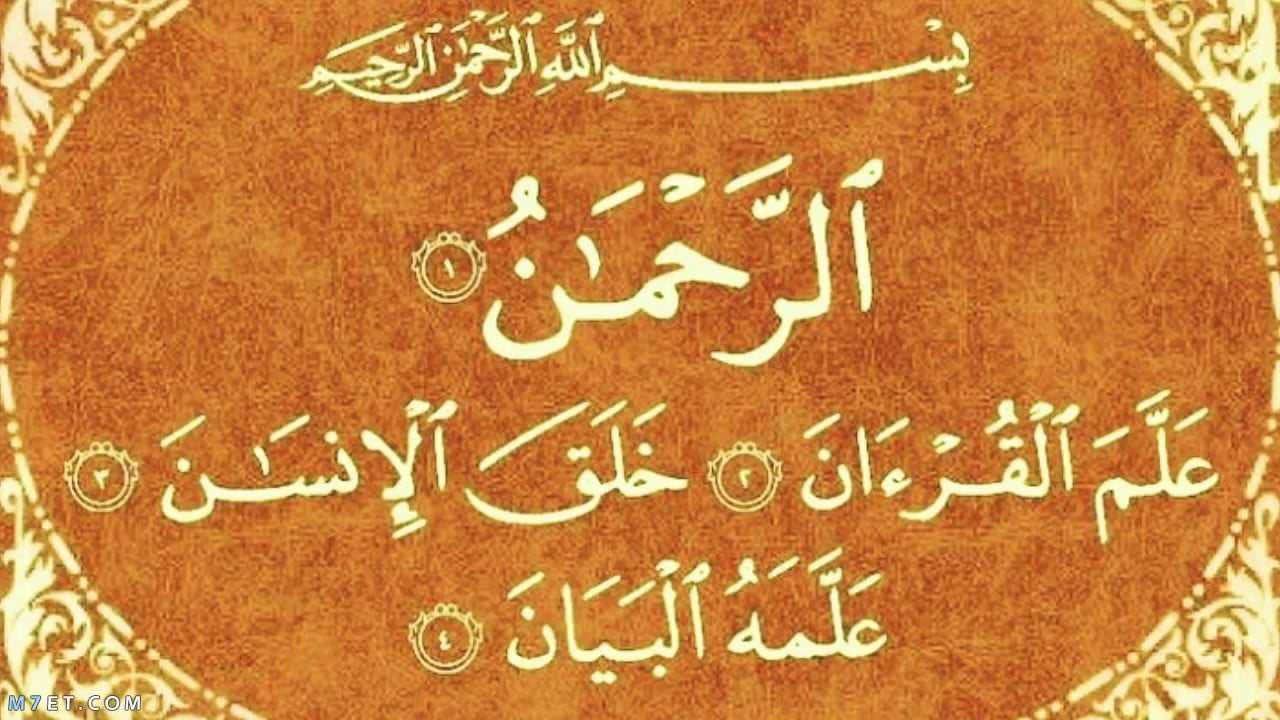 بِسْمِ ٱللَّهِ ٱلرَّحْمَٰنِ ٱلرَّحِيمِ
ٱلرَّحْمَٰنُ ١
عَلَّمَ ٱلْقُرْءَانَ ٢ خَلَقَ ٱلْإِنسَٰنَ ٣
عَلَّمَهُ ٱلْبَيَانَ ٤
M7ET.COM